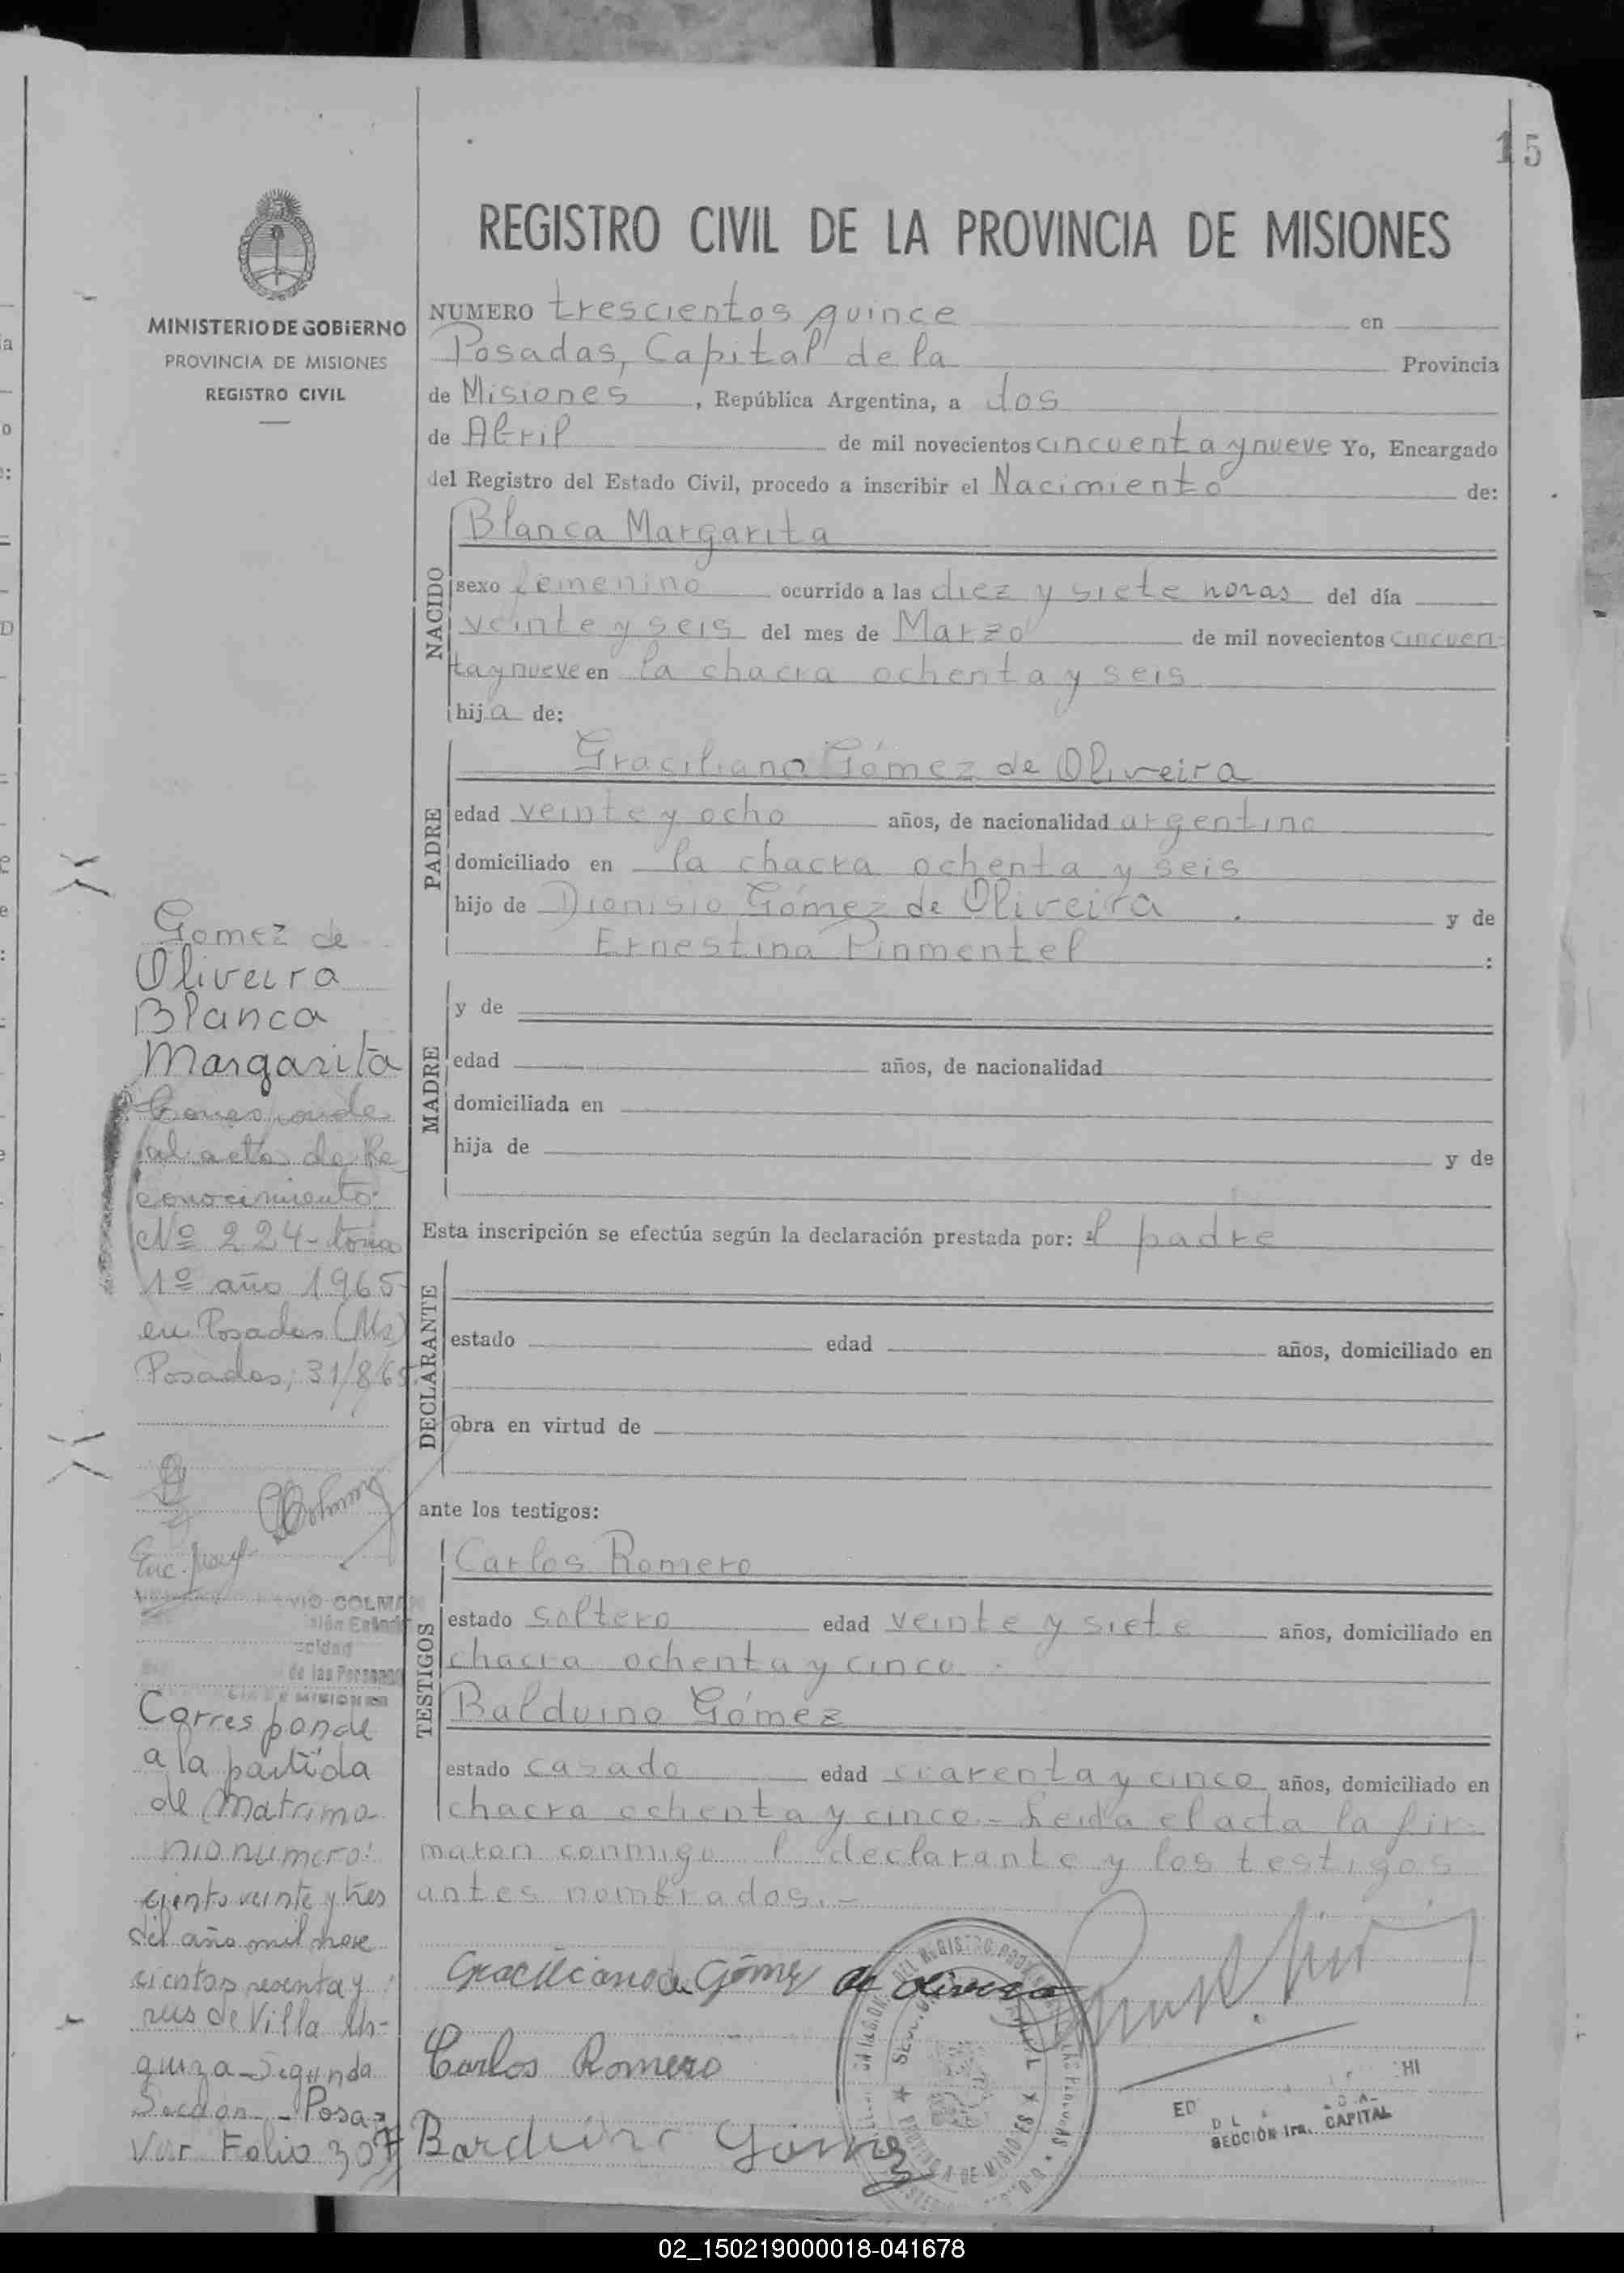 15
REGISTRO CIVIL DE LA PROVINCIA DE MISIONES
MINISTERIO DE GOBIERNO
PROVINCIA DE MISIONES
REGISTRO CIVIL
NUMERO trescientos quince en
Posadas, Capital de la Provincia
de Misiones, República Argentina, a dos
de Abril de mil novecientos cincuenta y nueve Yo, Encargado
del Registro del Estado Civil, procedo a inscribir el Nacimiento de:
NACIDO
Blanca Margarita
sexo femenino ocurrido a las diez y siete horas del día
veinte y seis del mes de Marzo de mil novecientos cincuen
ta y nueve en la chacra ochenta y seis
hija de:
PADRE
Graciliano Gómez de Oliveira
edad veinte y ocho años, de nacionalidad argentino
domiciliado en la chacra ochenta y seis
hijo de Dionisio Gómez de Oliveira y de
Ernestina Pinmentel :
MADRE
y de
edad años, de nacionalidad
domiciliada en
hija de y de
Esta inscripción se efectúa según la declaración prestada por: el padre
DECLARANTE
estado edad años, domiciliado en
obra en virtud de
ante los testigos:
TESTIGOS
Carlos Romero
estado soltero edad veinte y siete años, domiciliado en
chacra ochenta y cinco.
Balduino Gómez
estado casado edad cuarenta y cinco años, domiciliado en
chacra ochenta y cinco.- Leida el acta la fir-
maron conmigo l declarante y los testigos
antes nombrados.-
Gomez de
Oliveira
Blanca
Margarita
Corresponde
al acta de Re
conocimiento
Nº 224- tomo
1º año 1965-
en Posadas (Ms)
Posadas, 31/8/65.
Corresponde
a la partida
de Matrimo
nio numero:
ciento veinte y tres
del año mil nove
cientos sesenta y
de Villa Ur-
quiza - Segunda
Sección - Posa-
Ver Folio 307
Gómez de Oliveira
Carlos Romero
Gómez
SECCIÓN 1ra. CAPITAL
02_150219000018-041678